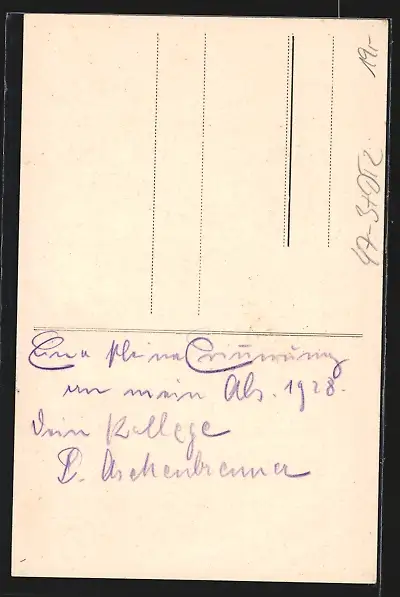 Eine kleine Erinnerung
an mein Abs. 1928.
Dein Kollege
P. Aschenbrenner
19,-